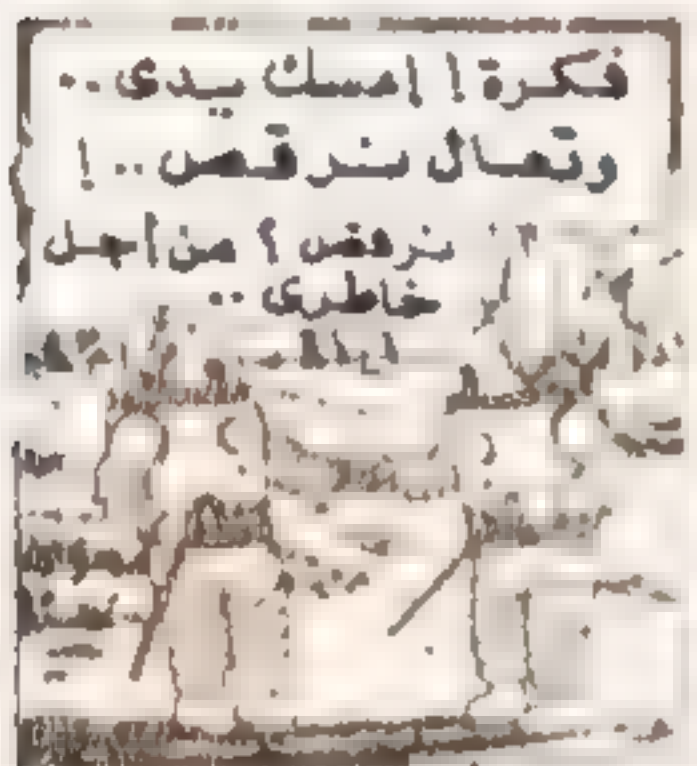 فكرة ! امسك يدى ..
وتعال نرقص .. !
نرقص ؟ من اجل
خاطرى ..